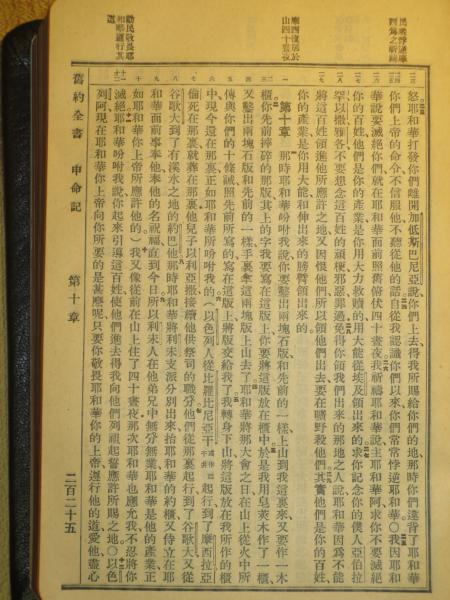 民眾悖逆摩
西為之祈禱
摩西復居於
山四十晝夜
勸民敬畏耶
和華遵行其
道
怒耶和華打發你們離開加低斯巴尼亞說你們上去得我所賜給你們的地那時你們違背了耶和華
你們上帝的命令不信服他不聽從他的話自從我認識你們以來你們常常悖逆耶和華〇我因耶和
華說要滅絕你們就在耶和華面前照舊俯伏四十晝夜我祈禱耶和華說主耶和華阿求你不要滅絕
你的百姓他們是你的產業是你用大力救贖的用大能從埃及領出來的求你記念你的僕人亞伯拉
罕以撒雅各不要想念這百姓的頑梗邪惡罪過免得你領我們出來的那地之人說耶和華因為不能
將這百姓領進他所應許之地又因恨他們所以領他們出去要在曠野殺他們其實他們是你的百姓
你的產業是你用大能和伸出來的膀臂領出來的
第十章 那時耶和華吩咐我說你要鑿出兩塊石版和先前的一樣上山到我這裏來又要作一木
櫃你先前摔碎的那版其上的字我要寫在這版上你要將這版放在櫃中於是我用皂莢木作了一櫃
又鑿出兩塊石版和先前的一樣手裏拿這兩塊版上山去了耶和華將那大會之日在山上從火中所
傳與你們的十條誡照先前所寫的寫在這版上將版交給我了我轉身下山將這版放在我所作的櫃
中現今還在那裏正如耶和華所吩咐我的〇以色列人從比羅比尼亞干或作亞干井起行到了摩西拉亞
倫死在那裏就葬在那裏他兒子以利亞撒接續他供祭司的職分他們從那裏起行到了谷歌大又從
谷歌大到了有溪水之地的約巴他那時耶和華將利未支派分別出來抬耶和華的約櫃又侍立在耶
和華面前事奉他奉他的名祝福直到今日所以利未人在他弟兄中無分無業耶和華是他的產業正
如耶和華你上帝所應許他的)我又像從前在山上住了四十晝夜那次耶和華也應允我不忍將你
滅絕耶和華吩咐我說你起來引導這百姓使他們進去得我向他們列祖起誓應許所賜之地〇以色
列阿現在耶和華你上帝向你所要的是甚麼呢只要你敬畏耶和華你的上帝遵行他的道愛他盡心
舊約全書 申命記 第十章 二百二十五